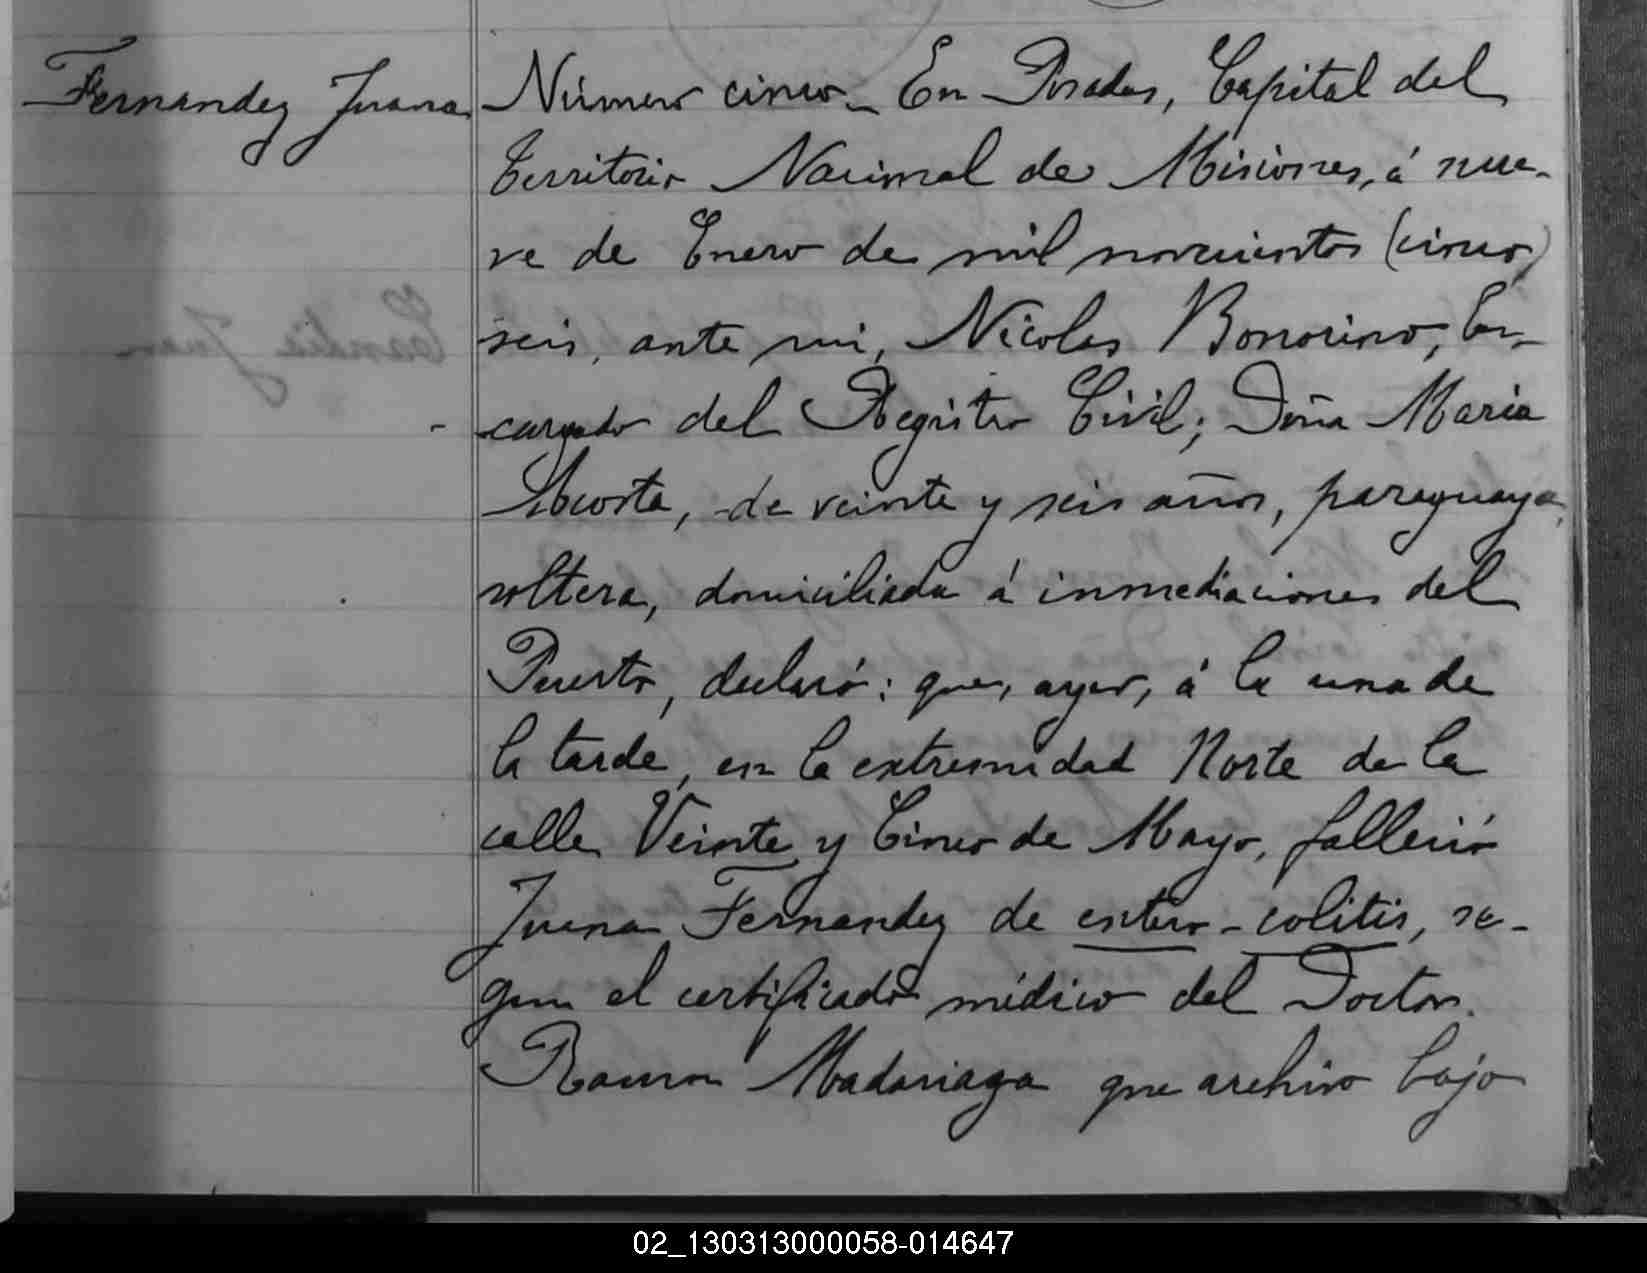 Fernandez Juana
Número cinco_ En Posadas, Capital del
Territorio Nacional de Misiones, á nue-
ve de Enero de mil novecientos (cinco)
seis, ante mi, Nicolas Bonorino, En-
cargado del Registro Civil; Doña Maria
Acosta, de veinte y seis años, paraguaya,
soltera, domiciliada á inmediaciones del
Puerto, declaró: que, ayer, á la una de
la tarde, en la extremidad Norte de la
calle Veinte y Cinco de Mayo, falleció
Juana Fernandez de entero-colitis, se-
gun el certificado médico del Doctor
Ramon Madariaga que archivo bajo
02_130313000058-014647